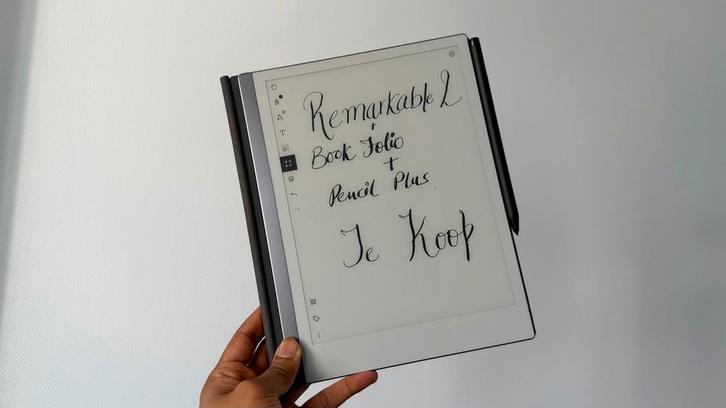 Remarkable 2
+
Book Folio
+
Pencil Plus
Te Koop